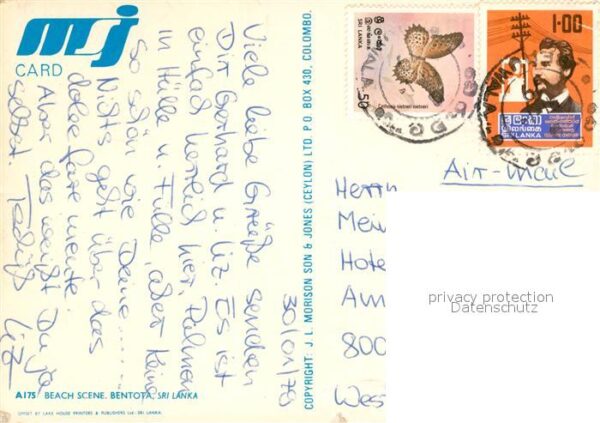 msj
CARD
Viele liebe Grüße senden
Dir Gerhard u. Liz. Es ist
einfach herrlich hier, Palmen
in Hülle u. Fülle, aber keine
so schön wie Deine......
Nichts geht über das
dolce fare niente.
Aber das weißt Du ja
selbst. Tschüß
Liz
30/01/78
A175 BEACH SCENE. BENTOTA, SRI LANKA
OFFSET BY LAKE HOUSE PRINTERS & PUBLISHERS LTD. SRI LANKA.
COPYRIGHT J. L. MORISON SON & JONES (CEYLON) LTD. P.O. BOX 430, COLOMBO.
ශ්‍රී ලංකා
SRI LANKA
.50
Cethosia nietneri nietneri
1·00
ශ්‍රී ලංකා
இலங்கை
SRI LANKA
Air-Mail
Herrn
Hote
800
Wes
privacy protection
Datenschutz